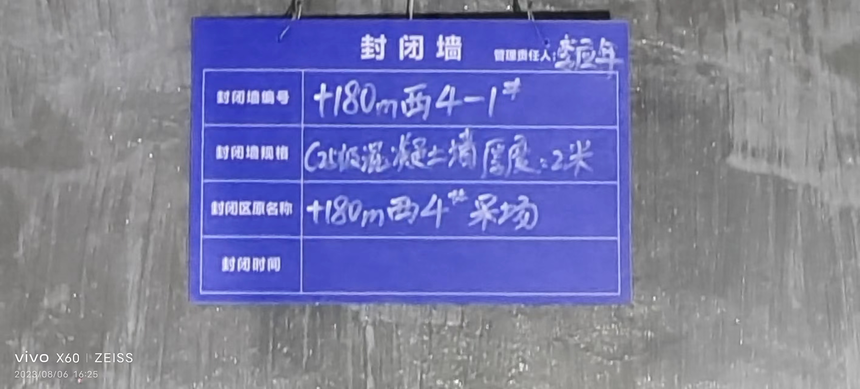 封闭墙
管理责任人:李应年
封闭墙编号 +180m西4-1#
封闭墙规格 C25级混凝土墙厚度:2米
封闭区原名称 +180m西4#采场
封闭时间
vivo X60 | ZEISS
2023/08/06 16:25